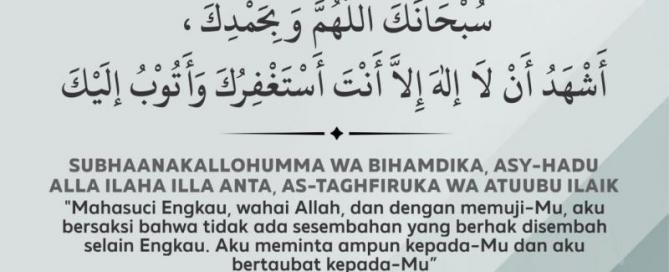 سُبْحَانَكَ اللَّهُمَّ وَبِحَمْدِكَ ،
أَشْهَدُ أَنْ لَا إِلٰهَ إِلاَّ أَنْتَ أَسْتَغْفِرُكَ وَأَتُوْبُ إِلَيْكَ
SUBHAANAKALLOHUMMA WA BIHAMDIKA, ASY-HADU
ALLA ILAHA ILLA ANTA, AS-TAGHFIRUKA WA ATUUBU ILAIK
"Mahasuci Engkau, wahai Allah, dan dengan memuji-Mu, aku
bersaksi bahwa tidak ada sesembahan yang berhak disembah
selain Engkau. Aku meminta ampun kepada-Mu dan aku
bertaubat kepada-Mu”